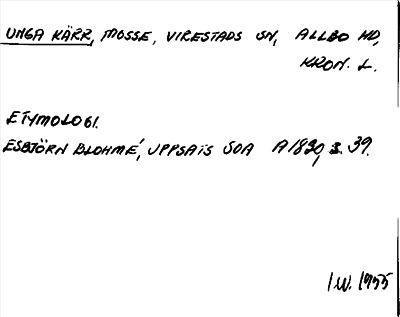 UNGA KÄRR, MOSSE, VIRESTADS SN, ALLBO HD,
KRON. L.
ETYMOLOGI.
ESBJÖRN BLOHMÉ, UPPSATS SOA A1830, S. 39.
IW. 1955